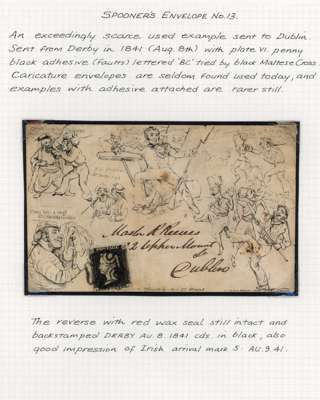 SPOONER'S ENVELOPE No. 13.
An exceedingly scarce used example sent to Dublin.
Sent from Derby in 1841 (Aug. 8th) with plate VI penny
black adhesive (faults) lettered 'BC' tied by black Maltese Cross.
Caricature envelopes are seldom found used today, and
examples with adhesive attached are rarer still.
Dublin
The reverse with red wax seal still intact and
backstamped DERBY AU. 8. 1841 cds. in black, also
good impression of Irish arrival mark S. AU. 9. 41.